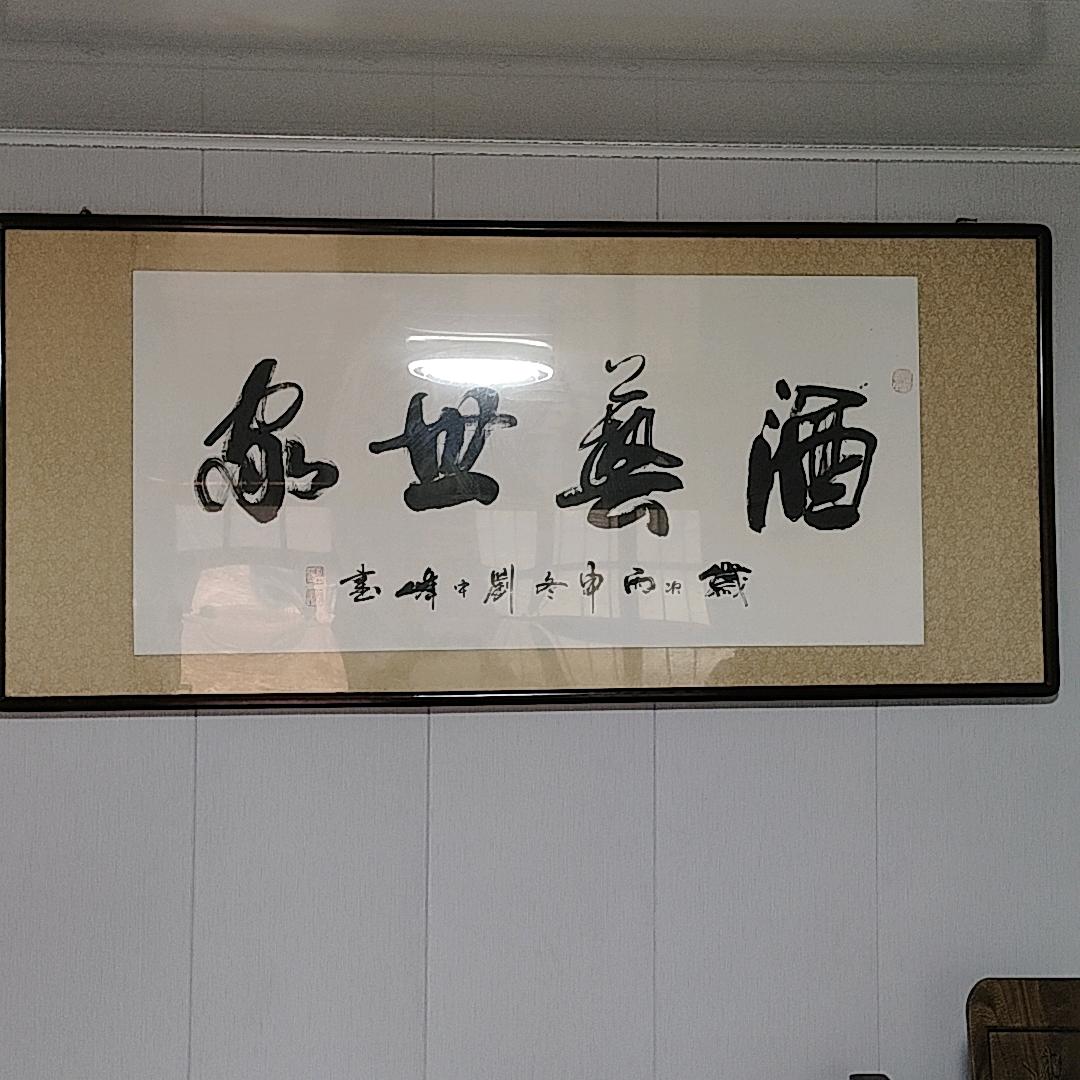 酒藝世家
歲次丙申冬劉中峰書